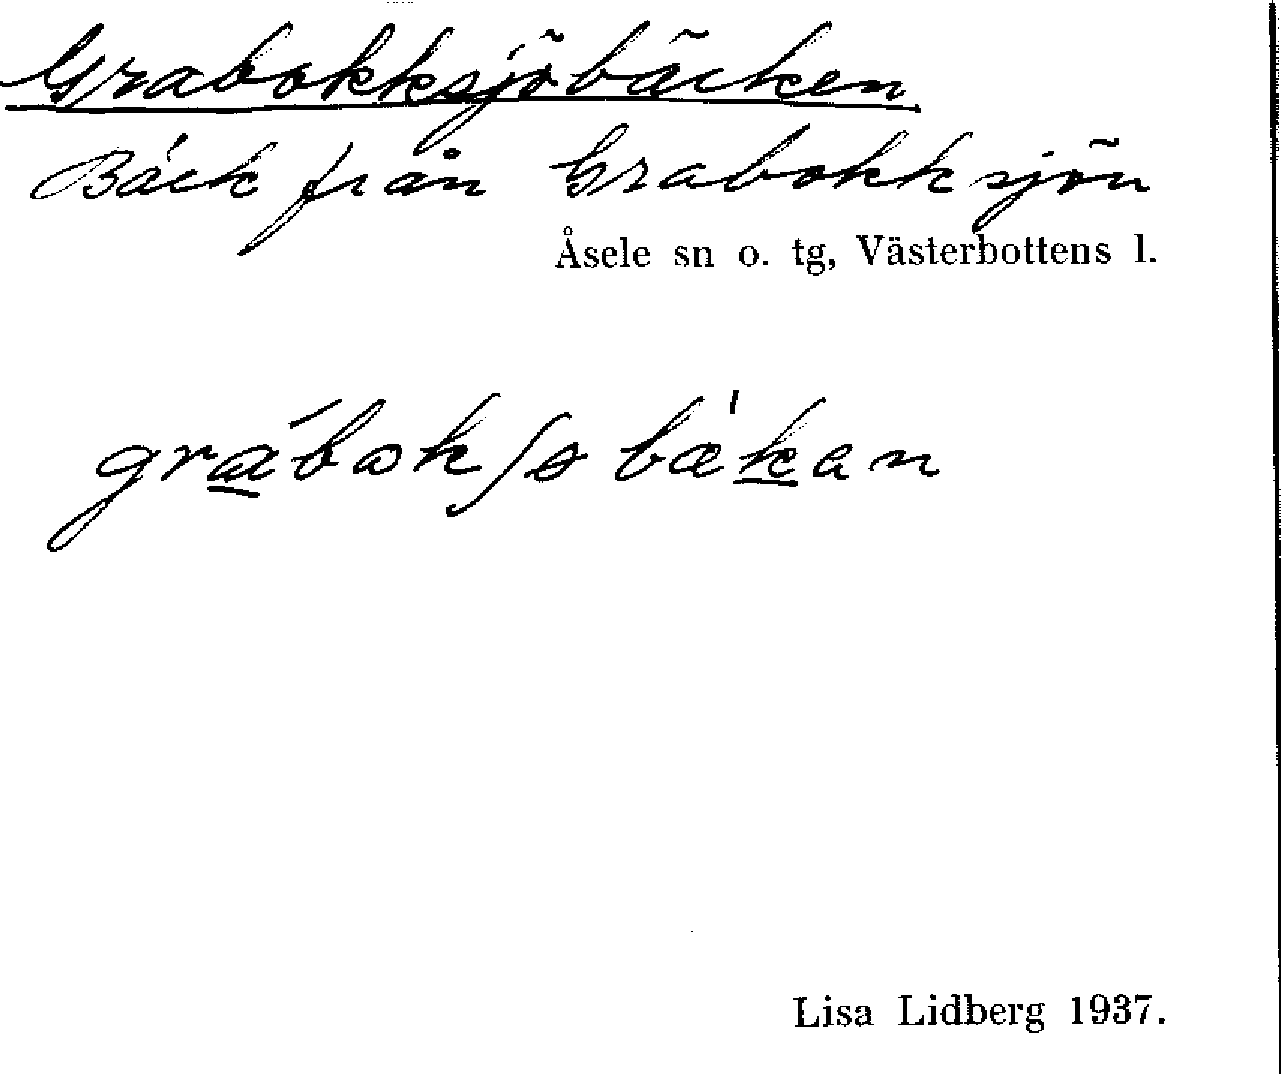 Grabokksjöbäcken
Bäck från Grabokksjön
Åsele sn o. tg, Västerbottens l.
Lisa Lidberg 1937.